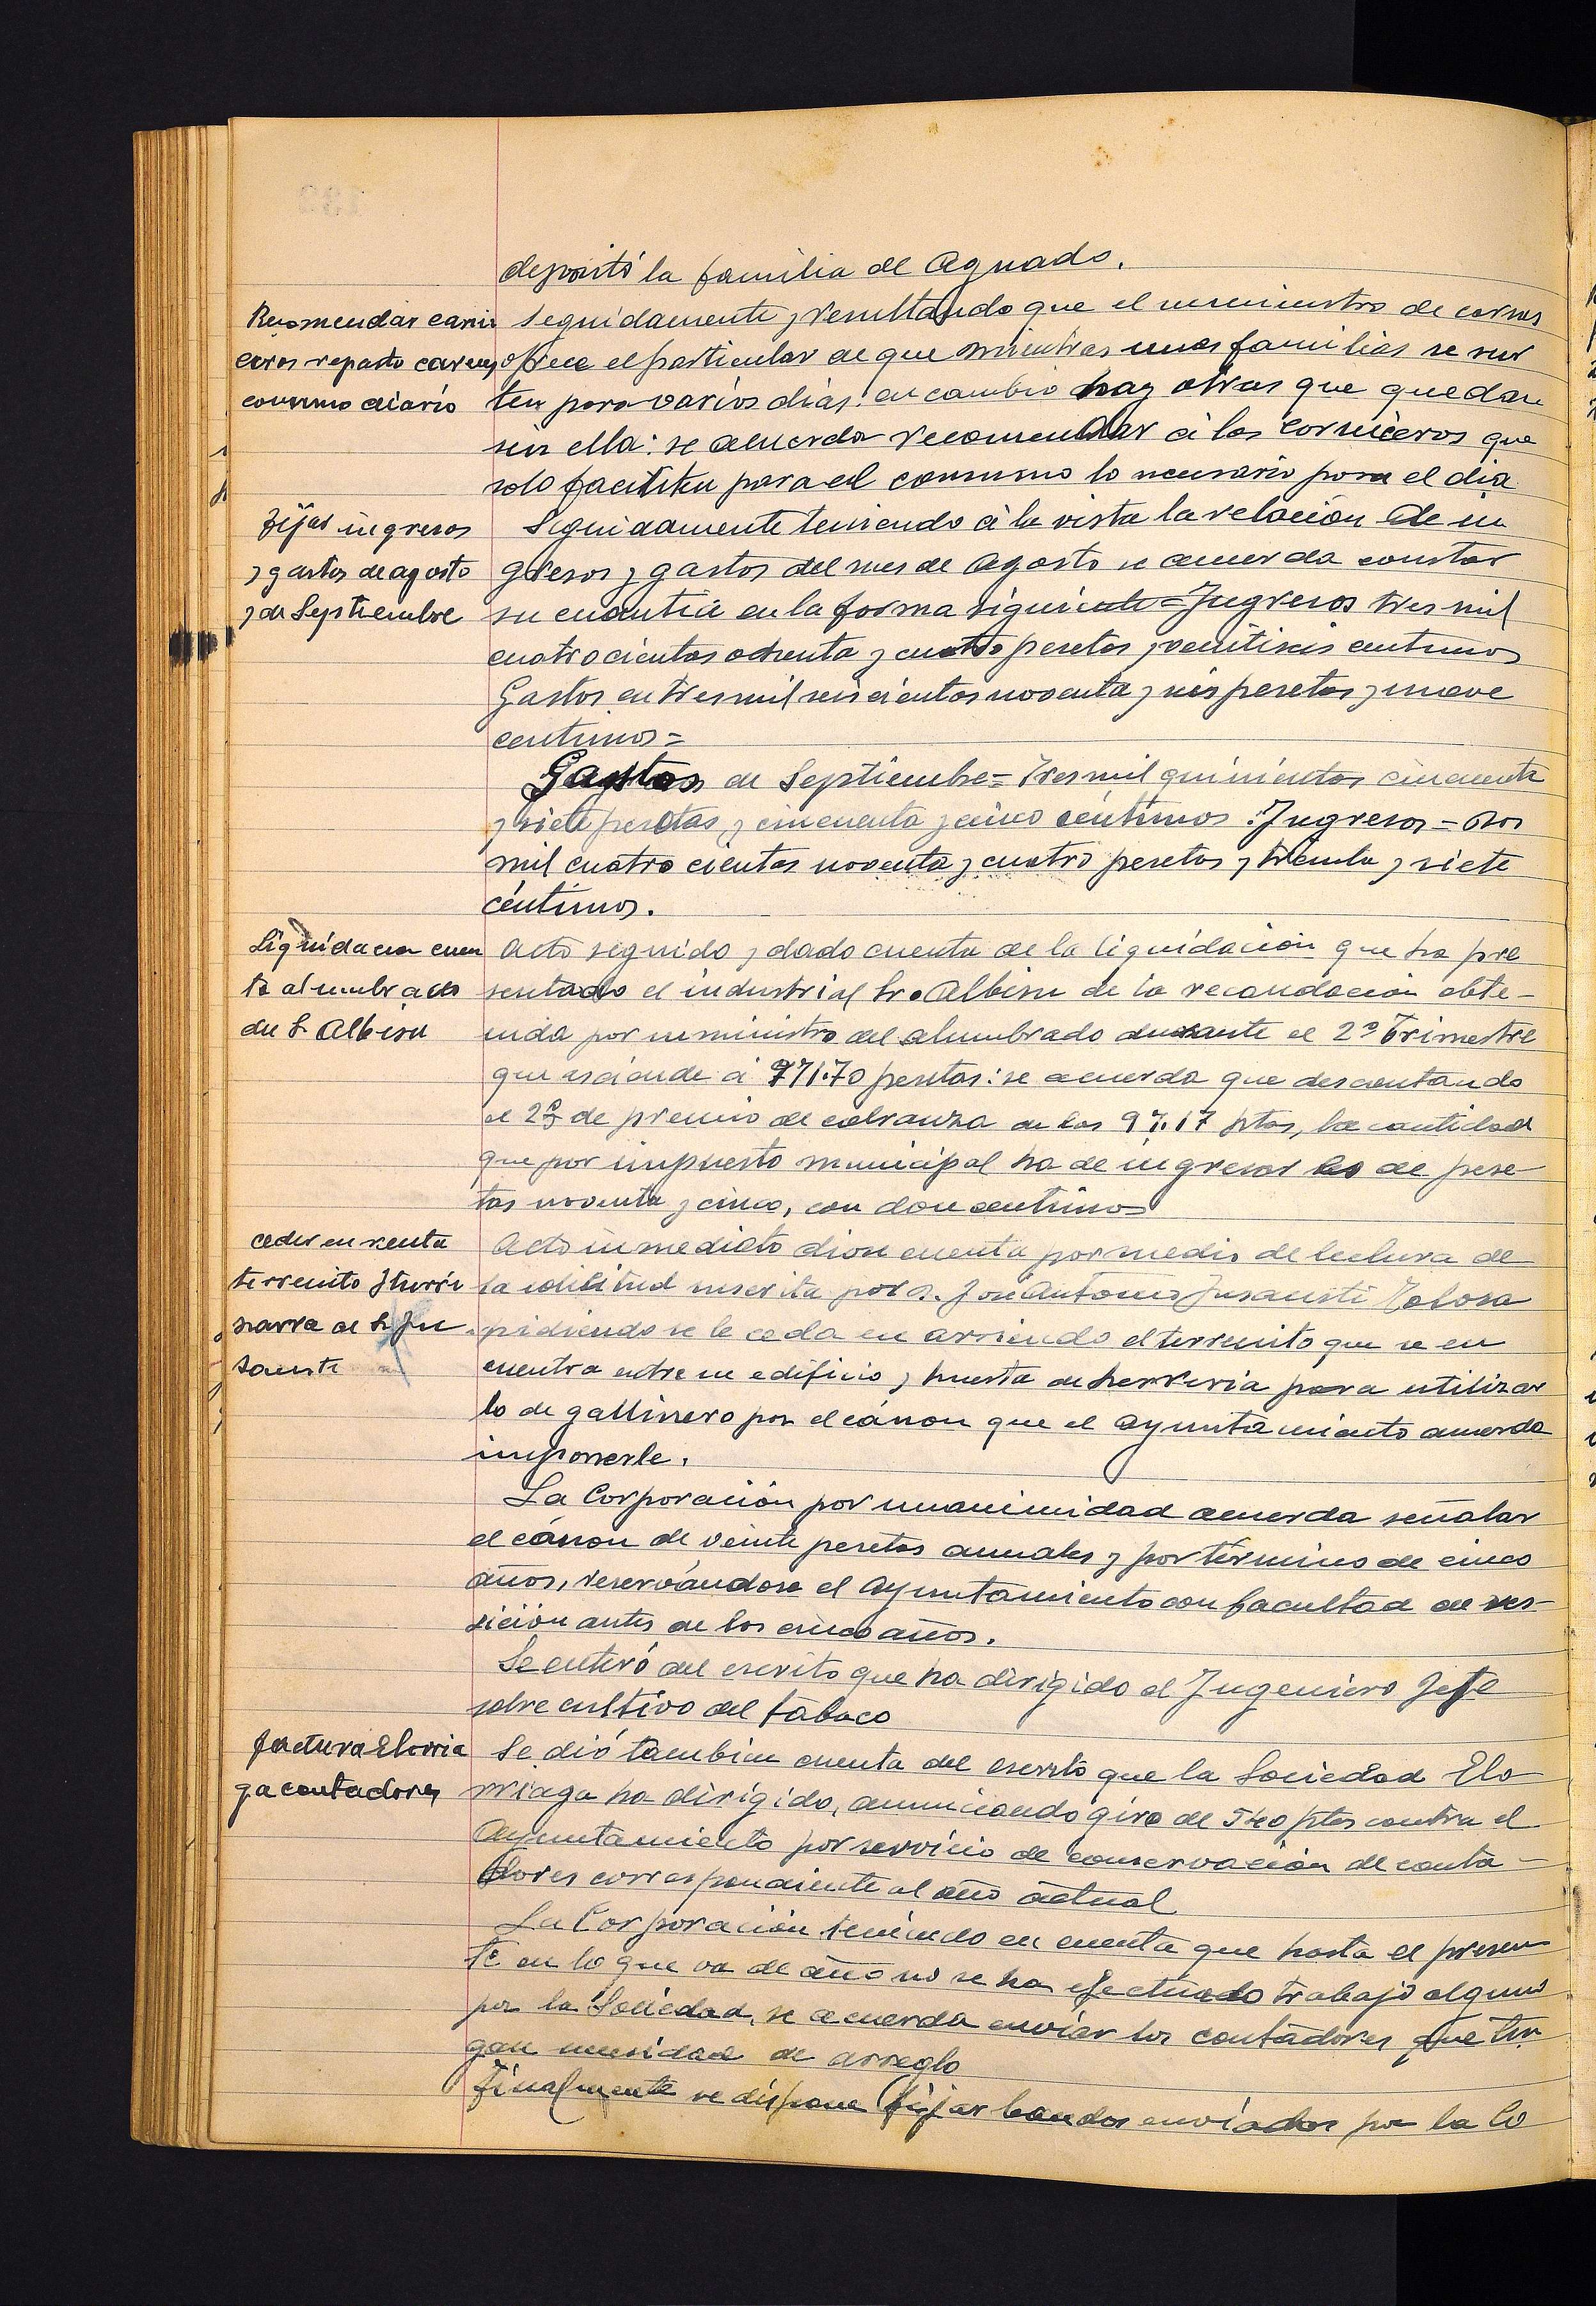 depositó la familia de Aguado.
Recomendar carni
ceros reparto carnes
consumo diario
Seguidamente y resultando que el suministro de carnes
ofrece el particular de que mientras unas familias se sur
ten para varios dias: en cambio hay otras que quedan
sin ella: se acuerda recomendar á los carniceros que
solo faciliten para el consumo lo necesario para el dia
Fijar ingresos
y gastos de agosto
y de Septiembre
Seguidamente teniendo á la vista la relación de in
gresos y gastos del mes de Agosto se acuerda constar
su cuantia en la forma siguiente = Ingresos tres mil
cuatrocientas ochenta y cuatro pesetas y veintiseis centimos
Gastos en tres mil seiscientos noventa y seis pesetas y nueve
centimos =
Gastos de Septiembre = Tres mil quinientas cincuenta
y siete pesetas y cincuenta y cinco céntimos. Ingresos = Dos
mil cuatro cientas noventa y cuatro pesetas y treinta y siete
céntimos.
Liquidacion cuen
ta alumbrado
de Sr Albisu
Acto seguido y dado cuenta de la liquidación que ha pre
sentado el industrial Sr. Albisu de la recaudación obte-
nida por suministro del alumbrado durante el 2º Trimestre
que asciende á 971.70 pesetas: se acuerda que descontando
el 2% de premio de cobranza de las 97.17 ptas, la cantidad
que por impuesto municipal ha de ingresar es de pese-
tas noventa y cinco, con doce centimos
ceder en renta
terrenito Iturri
narra al Sr In
sausti
Acto inmediato diose cuenta por medio de lectura de
la solicitud suscrita por D. José Antonio Insausti Tolosa
pidiendo se le ceda en arriendo el terrenito que se en
cuentra entre su edificio y huerta de herreria para utilizar
lo de gallinero por el cánon que el Ayuntamiento acuerda
imponerle.
La Corporación por unanimidad acuerda señalar
el cánon de veinte pesetas anuales y por término de cinco
años, reservándose el Ayuntamiento con facultad de res-
sición antes de los cinco años.
Se enteró del escrito que ha dirigido el Ingeniero Jefe
sobre cultivo del tabaco
factura Elorria
ga contadores
Se dió tambien cuenta del escrito que la Sociedad Elo
rriaga ha dirigido, anunciando giro de 540 ptas contra el
Ayuntamiento por servicio de conservación de conta-
dores correspondiente al año actual
La Corporación teniendo en cuenta que hasta el presen
te en lo que va de año no se ha efectuado trabajo alguno
por la Sociedad, se acuerda enviar los contadores que ten
gan necesidad de arreglo
Finalmente se dispone fijar bandos enviados por la Co